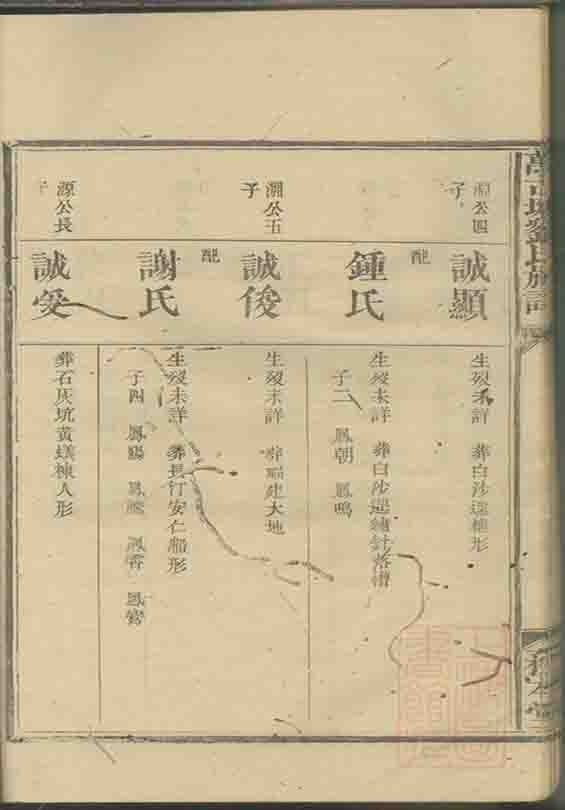 劉氏族譜
公四子
誠顯
生殁未詳 葬白沙邊 形
配
鍾氏
生殁未詳 葬白沙邊繡針落槽
子二 鳳朝 鳳鳴
淵公五子
誠俊
生殁未詳 葬福建大地
配
謝氏
生殁未詳 葬長汀安仁船形
子四 鳳陽 鳳 鳳 鳳鸞
源公長子
誠受
葬石灰坑黃蜞棟人形